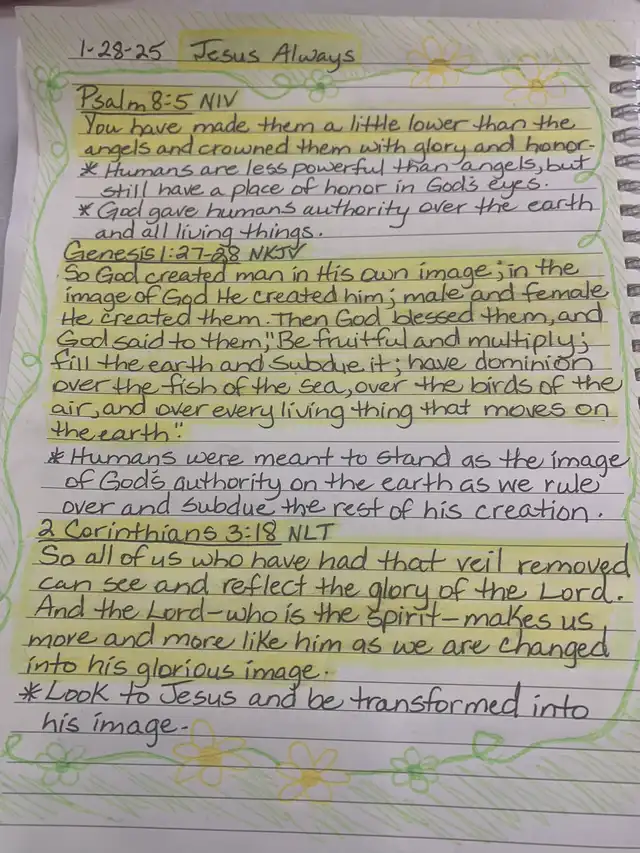 1-28-25 Jesus Always
Psalm 8:5 NIV
You have made them a little lower than the
angels and crowned them with glory and honor.
* Humans are less powerful than angels, but
still have a place of honor in God's eyes.
* God gave humans authority over the earth
and all living things.
Genesis 1:27-28 NKJV
So God created man in His own image; in the
image of God He created him; male and female
He created them. Then God blessed them, and
God said to them, "Be fruitful and multiply;
fill the earth and subdue it; have dominion
over the fish of the sea, over the birds of the
air, and over every living thing that moves on
the earth".
* Humans were meant to stand as the image
of God's authority on the earth as we rule
over and subdue the rest of his creation.
2 Corinthians 3:18 NLT
So all of us who have had that veil removed
can see and reflect the glory of the Lord.
And the Lord-who is the spirit-makes us
more and more like him as we are changed
into his glorious image.
* Look to Jesus and be transformed into
his image.